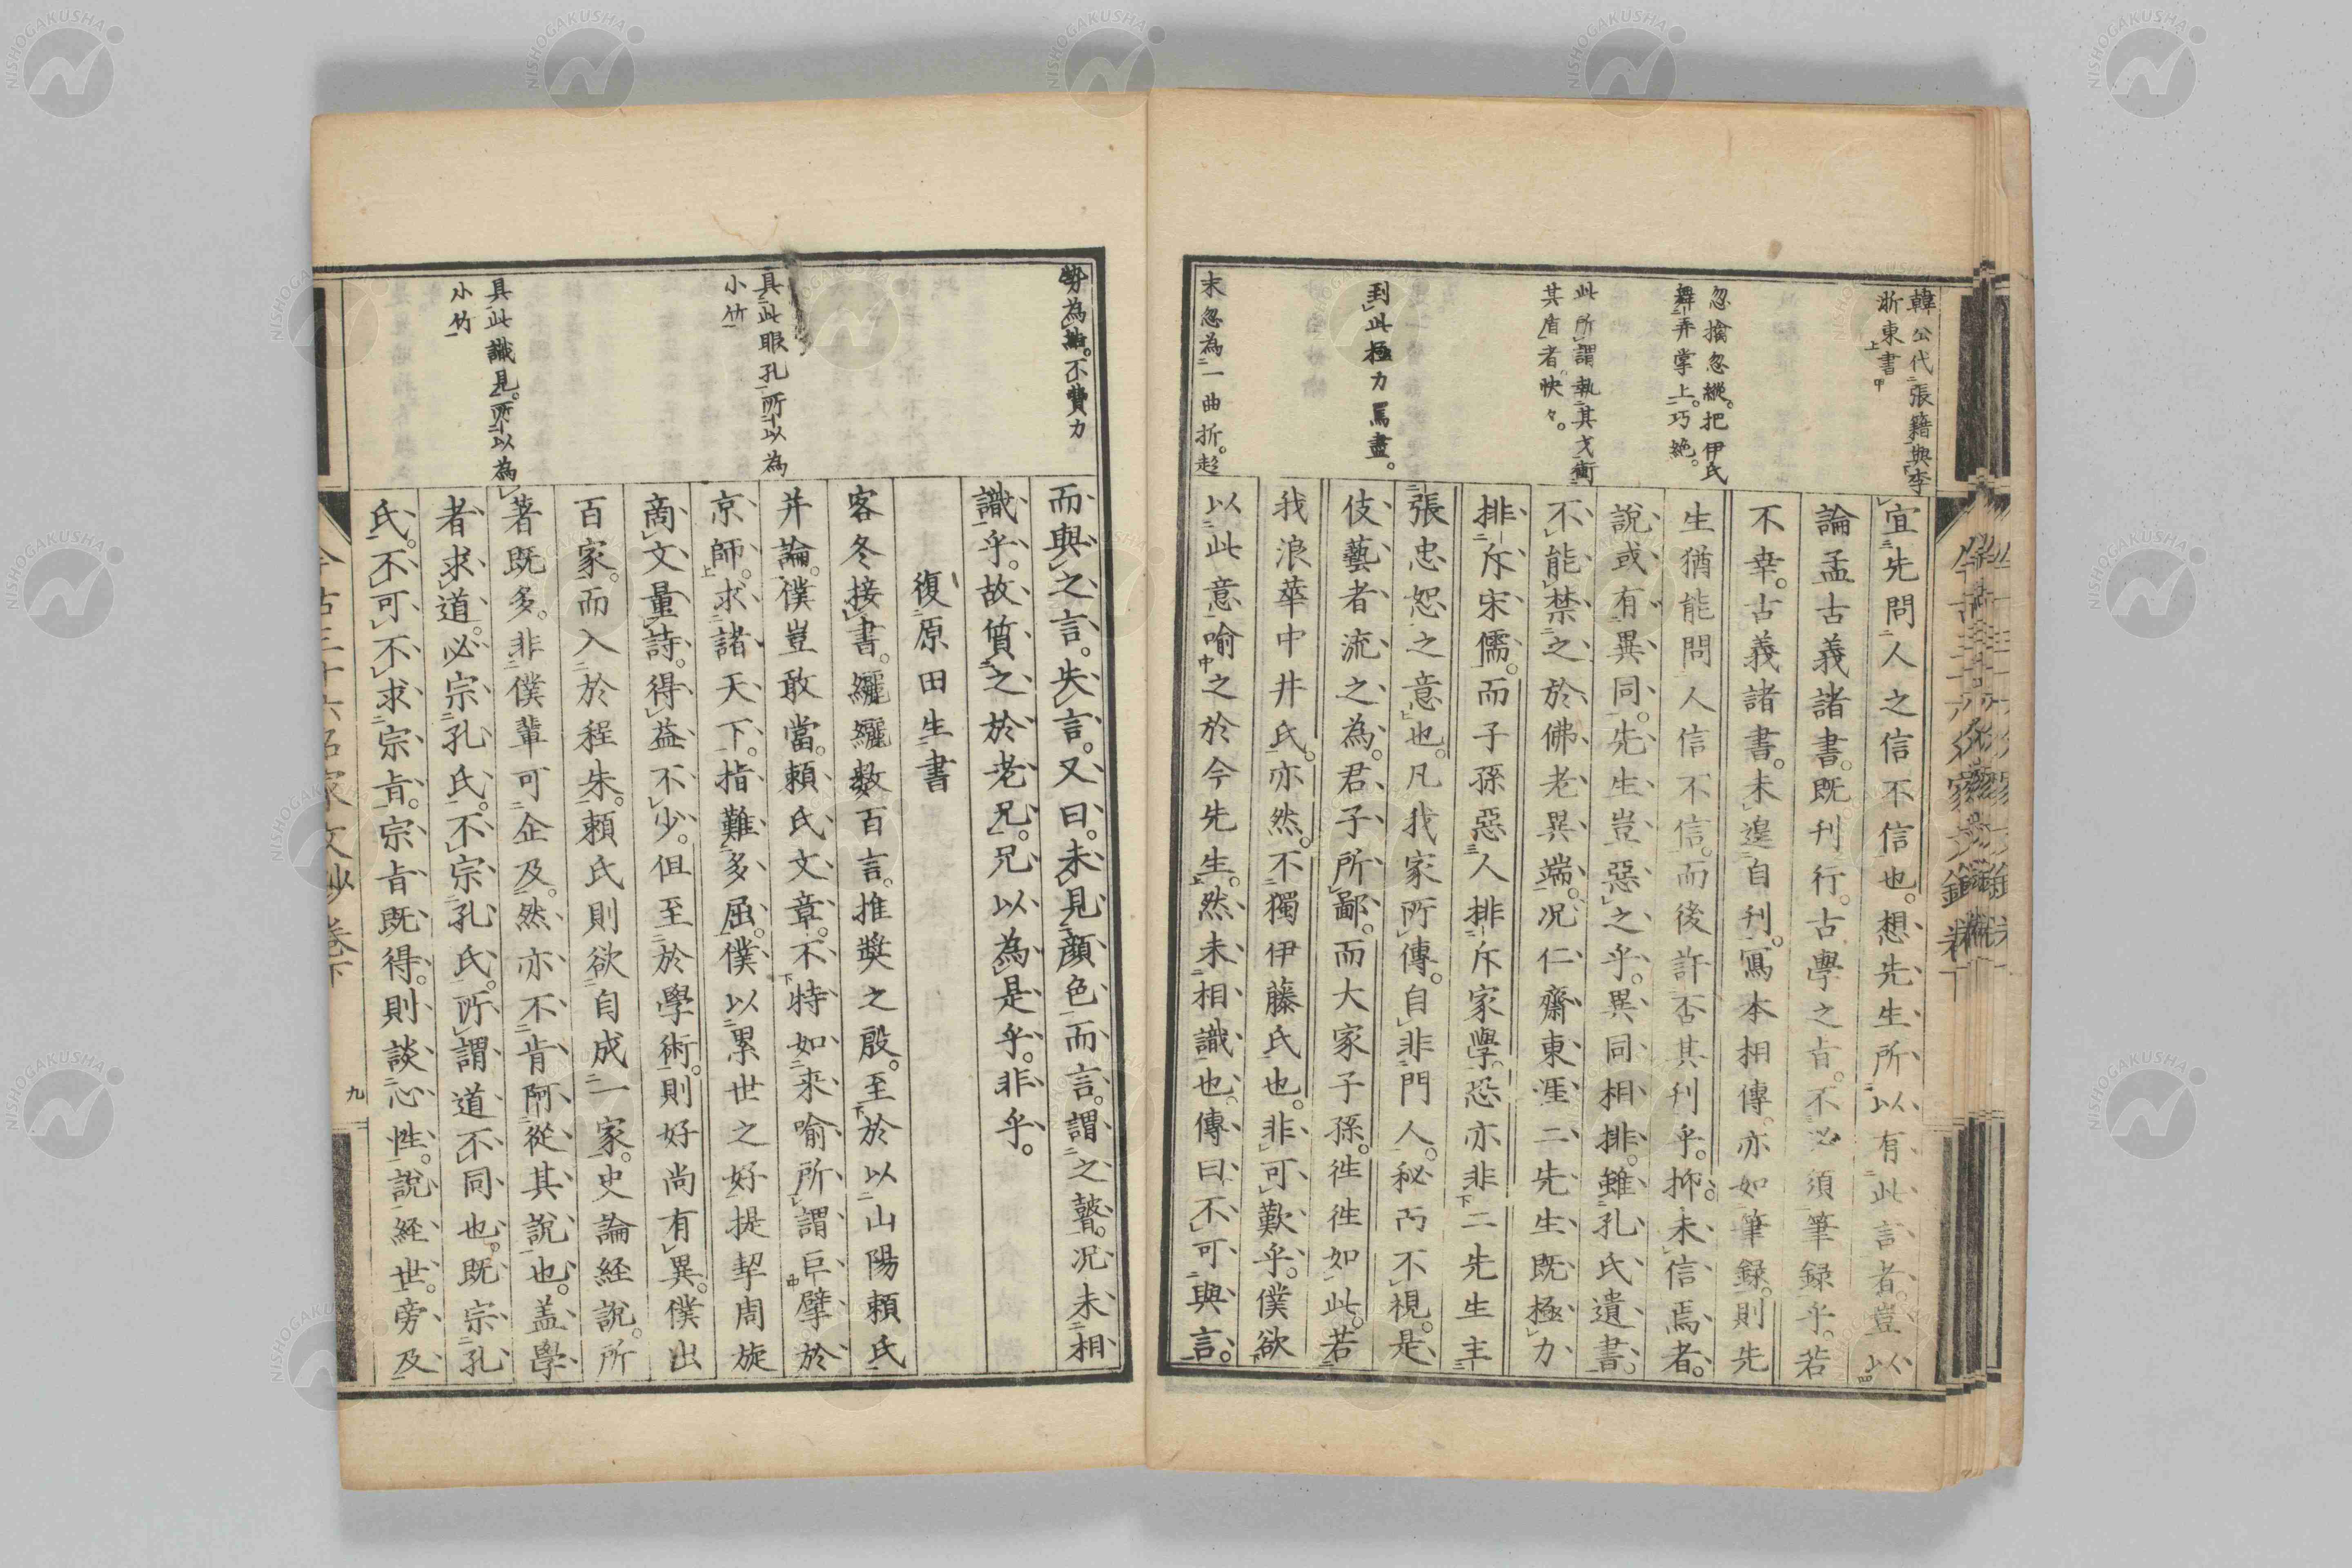 韓公代張籍與李
浙東書
忽擒忽縱。把伊氏
舞弄掌上。巧絶。
此所謂執其戈衝
其盾者。快々。
到此極力罵盡。
末忽為一曲折。趁
宜先問人之信不信也。想先生所以有此言者。豈以
論孟古義諸書。既刊行。古學之旨。不必須筆録乎。若
不幸。古義諸書。未遑自刊。寫本相傳。亦如筆録。則先
生猶能問人信不信。而後許否其刊乎。抑未信焉者。
說或有異同。先生豈惡之乎。異同相排。雖孔氏遺書。
不能禁之於佛老異端。況仁齋東涯二先生既極力
排斥宋儒。而子孫惡人排斥家學。恐亦非二先生主
張忠恕之意也。凡我家所傳。自非門人。秘而不視。是
伎藝者流之為。君子所鄙。而大家子孫。徃徃如此。若
我浪華中井氏。亦然。不獨伊藤氏也。非可歎乎。僕欲
以此意喻之於今先生。然未相識也。傳曰不可與言。
勞為結。不費力
具此眼孔所以為
小竹
具此識見。所以為
小竹
而與之言。失言。又曰。未見顔色而言。謂之瞽。況未相
識乎。故質之於老兄。兄以為是乎。非乎。
復原田生書
客冬接書。纚纚數百言。推奬之殷。至於以山陽頼氏
并論。僕豈敢當。頼氏文章。不特如來喻所謂巨擘於
京師。求諸天下。指難多屈。僕以累世之好提挈周旋
商文量詩。得益不少。但至於學術。則好尚有異。僕出
百家。而入於程朱。頼氏則欲自成一家。史論經說。所
著既多。非僕輩可企及。然亦不肯阿從其說也。盖學
者求道。必宗孔氏。不宗孔氏。所謂道不同也。既宗孔
氏。不可不求宗旨。宗旨既得。則談心性。說経世。旁及
今古三十六名家文抄卷下
九
NISHOGAKUSHA